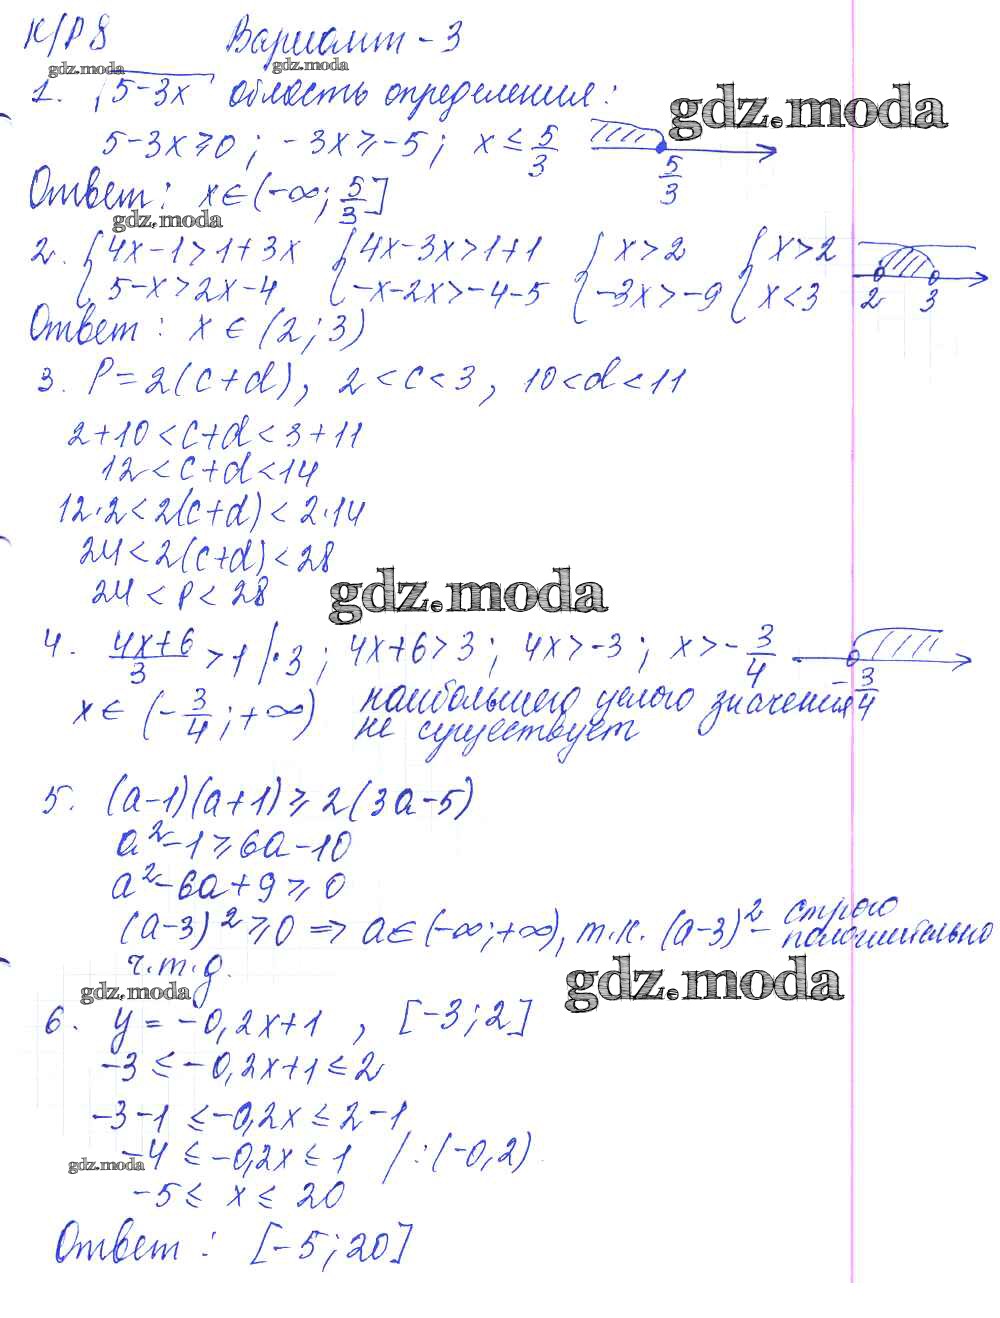 К/Р 8 Вариант - 3
gdz.moda gdz.moda
1. √5-3x область определения:
gdz.moda
5-3x≥0; -3x≥-5; x≤5/3
5/3
Ответ: x∈(-∞; 5/3]
gdz.moda
2. { 4x-1>1+3x { 4x-3x>1+1 { x>2 { x>2
5-x>2x-4 -x-2x>-4-5 -3x>-9 x<3 2 3
Ответ: x∈(2;3)
3. P=2(c+d), 2<c<3, 10<d<11
2+10<c+d<3+11
12<c+d<14
12·2<2(c+d)<2·14
24<2(c+d)<28
24<P<28
gdz.moda
4. (4x+6)/3 >1 |·3; 4x+6>3; 4x>-3; x>-3/4
-3/4
x∈(-3/4;+∞) наибольшего целого значения
не существует
5. (a-1)(a+1)≥2(3a-5)
a²-1≥6a-10
a²-6a+9≥0
(a-3)²≥0 => a∈(-∞;+∞), т.к. (a-3)² - строго
положительно
ч.т.д.
gdz.moda
gdz.moda
6. y=-0,2x+1, [-3;2]
-3≤-0,2x+1≤2
-3-1≤-0,2x≤2-1
-4≤-0,2x≤1 /:(-0,2)
gdz.moda
-5≤x≤20
Ответ: [-5;20]